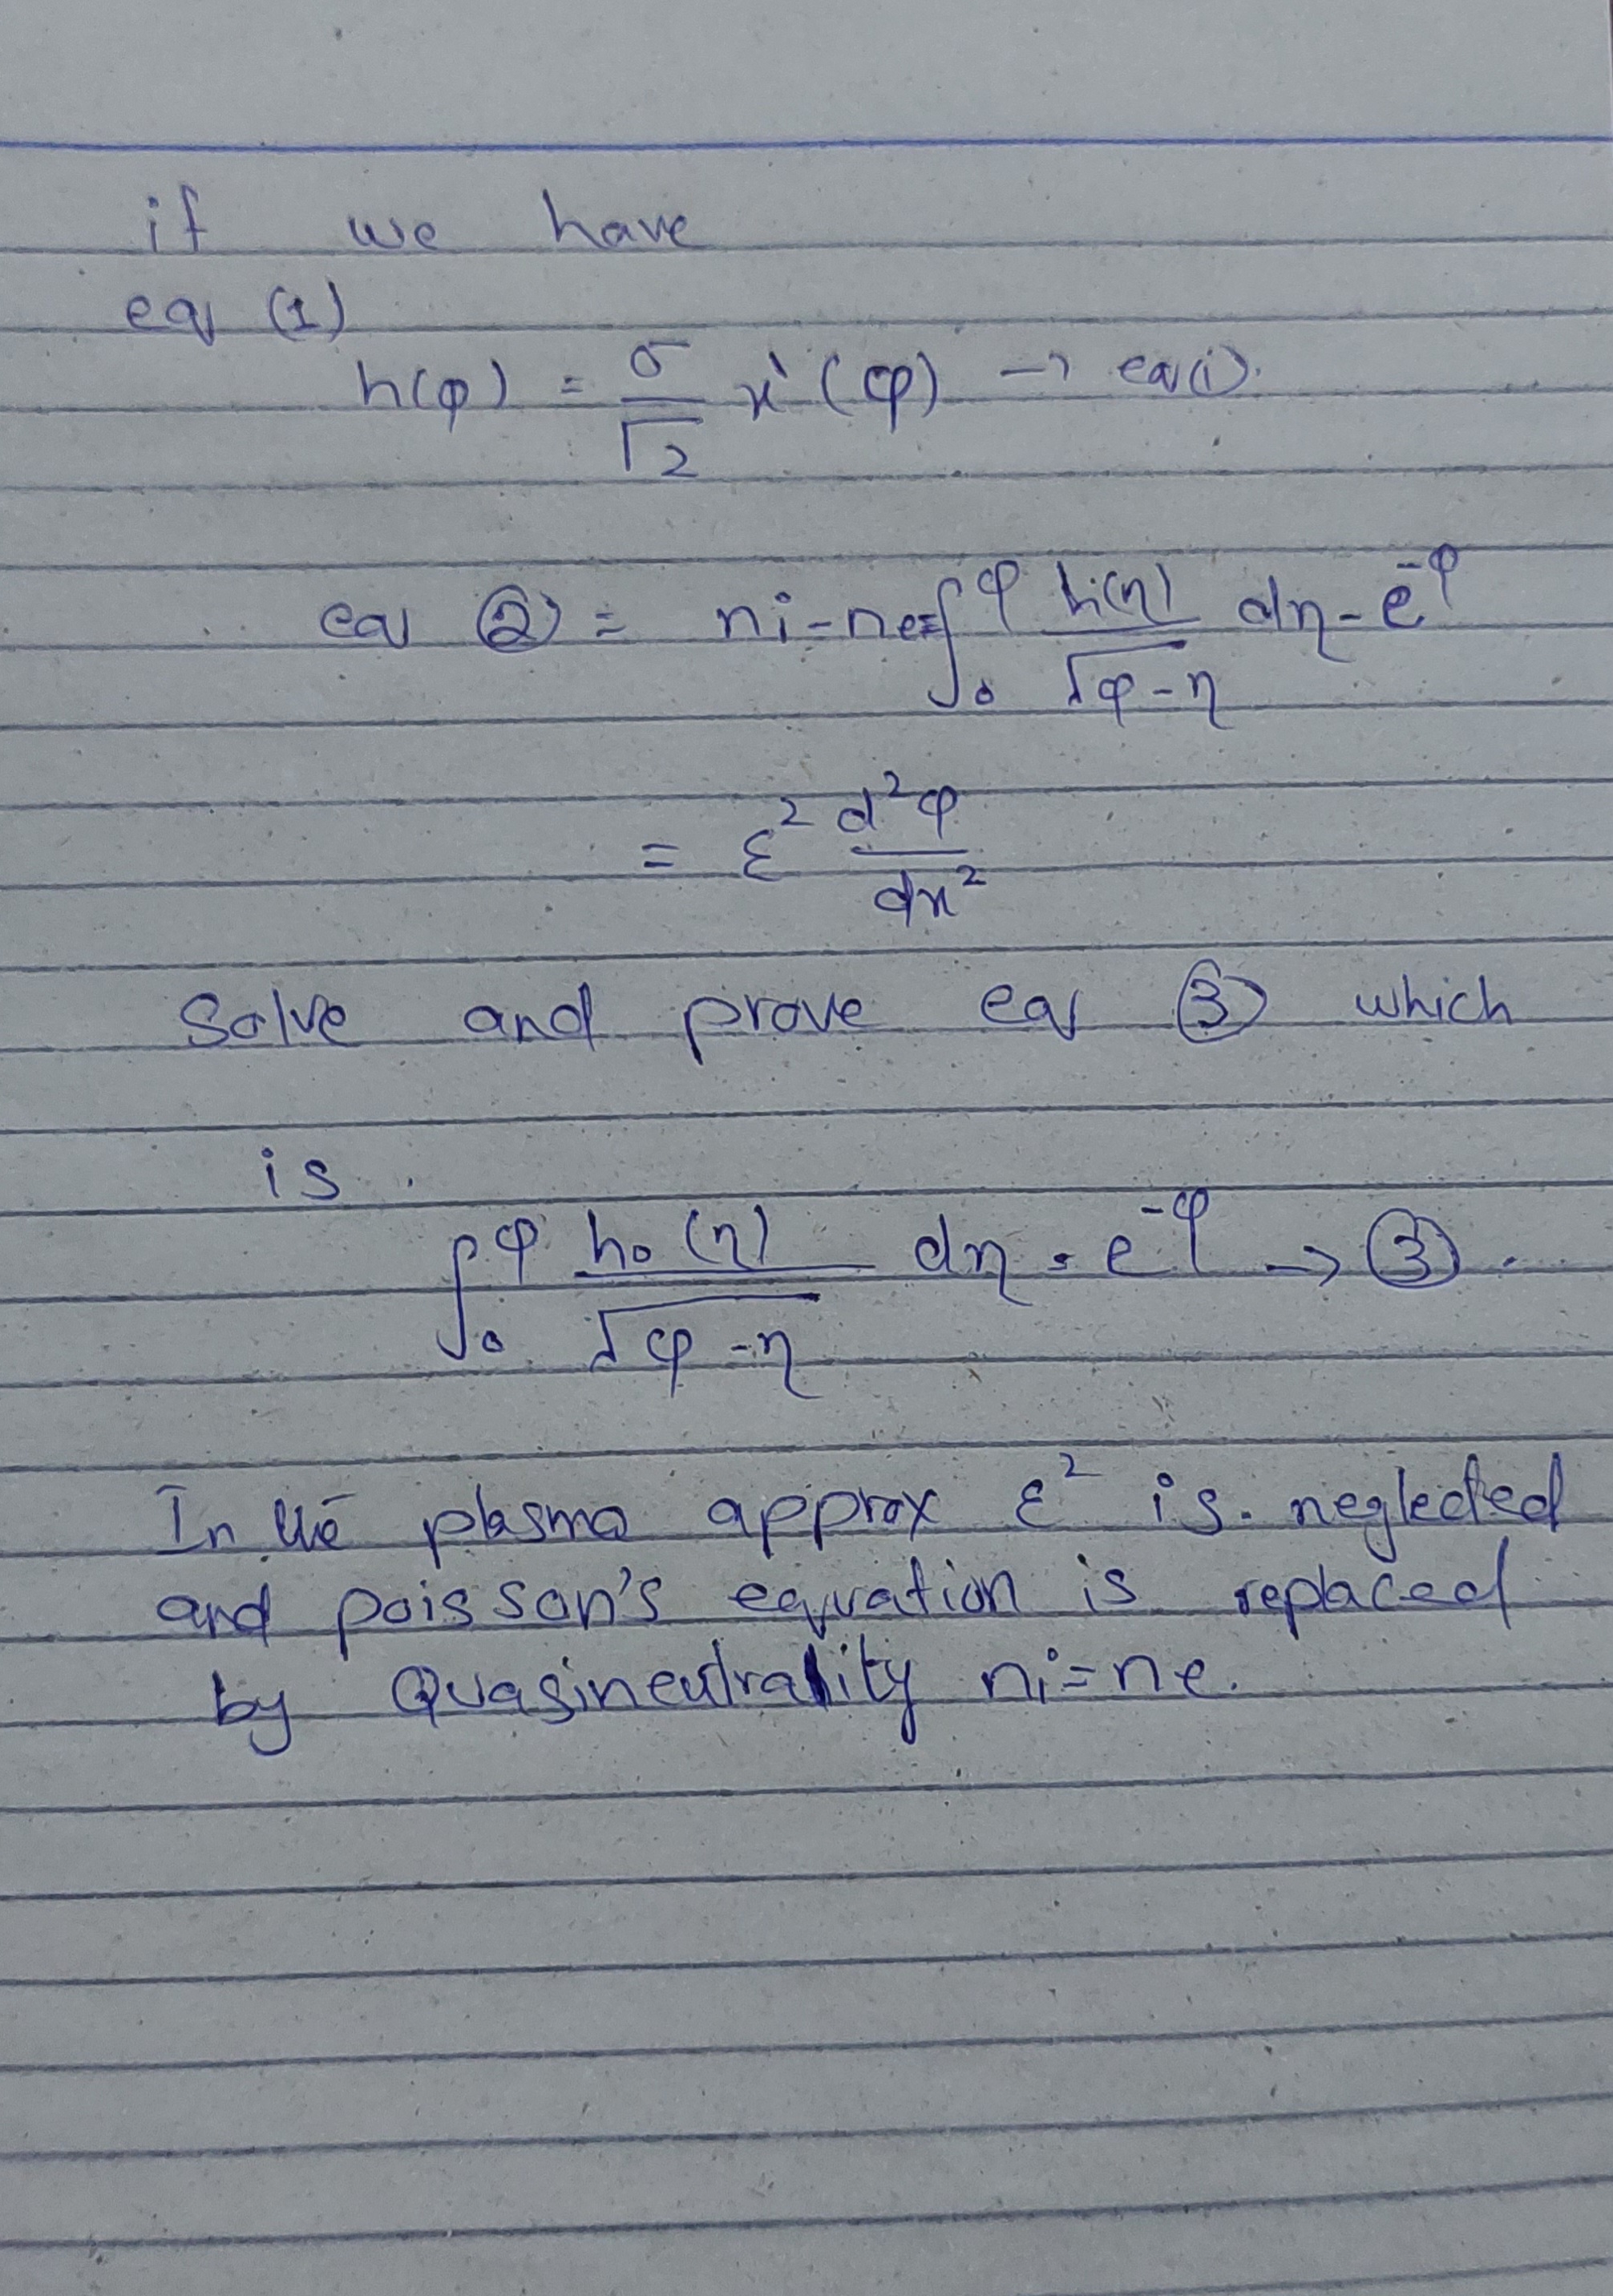 if we have
eq (1)
h(φ) = σ/√2 x'(φ) → eq(i).
eq ② = ni-ne=∫₀^φ h(η)/√φ-η dη-e^-φ
= ε² d²φ/dx²
Solve and prove eq ③ which
is.
∫₀^φ h₀(η)/√φ-η dη = e^-φ → ③.
In the plasma approx ε² is neglected
and poisson's equation is replaced
by Quasineutrality ni=ne.